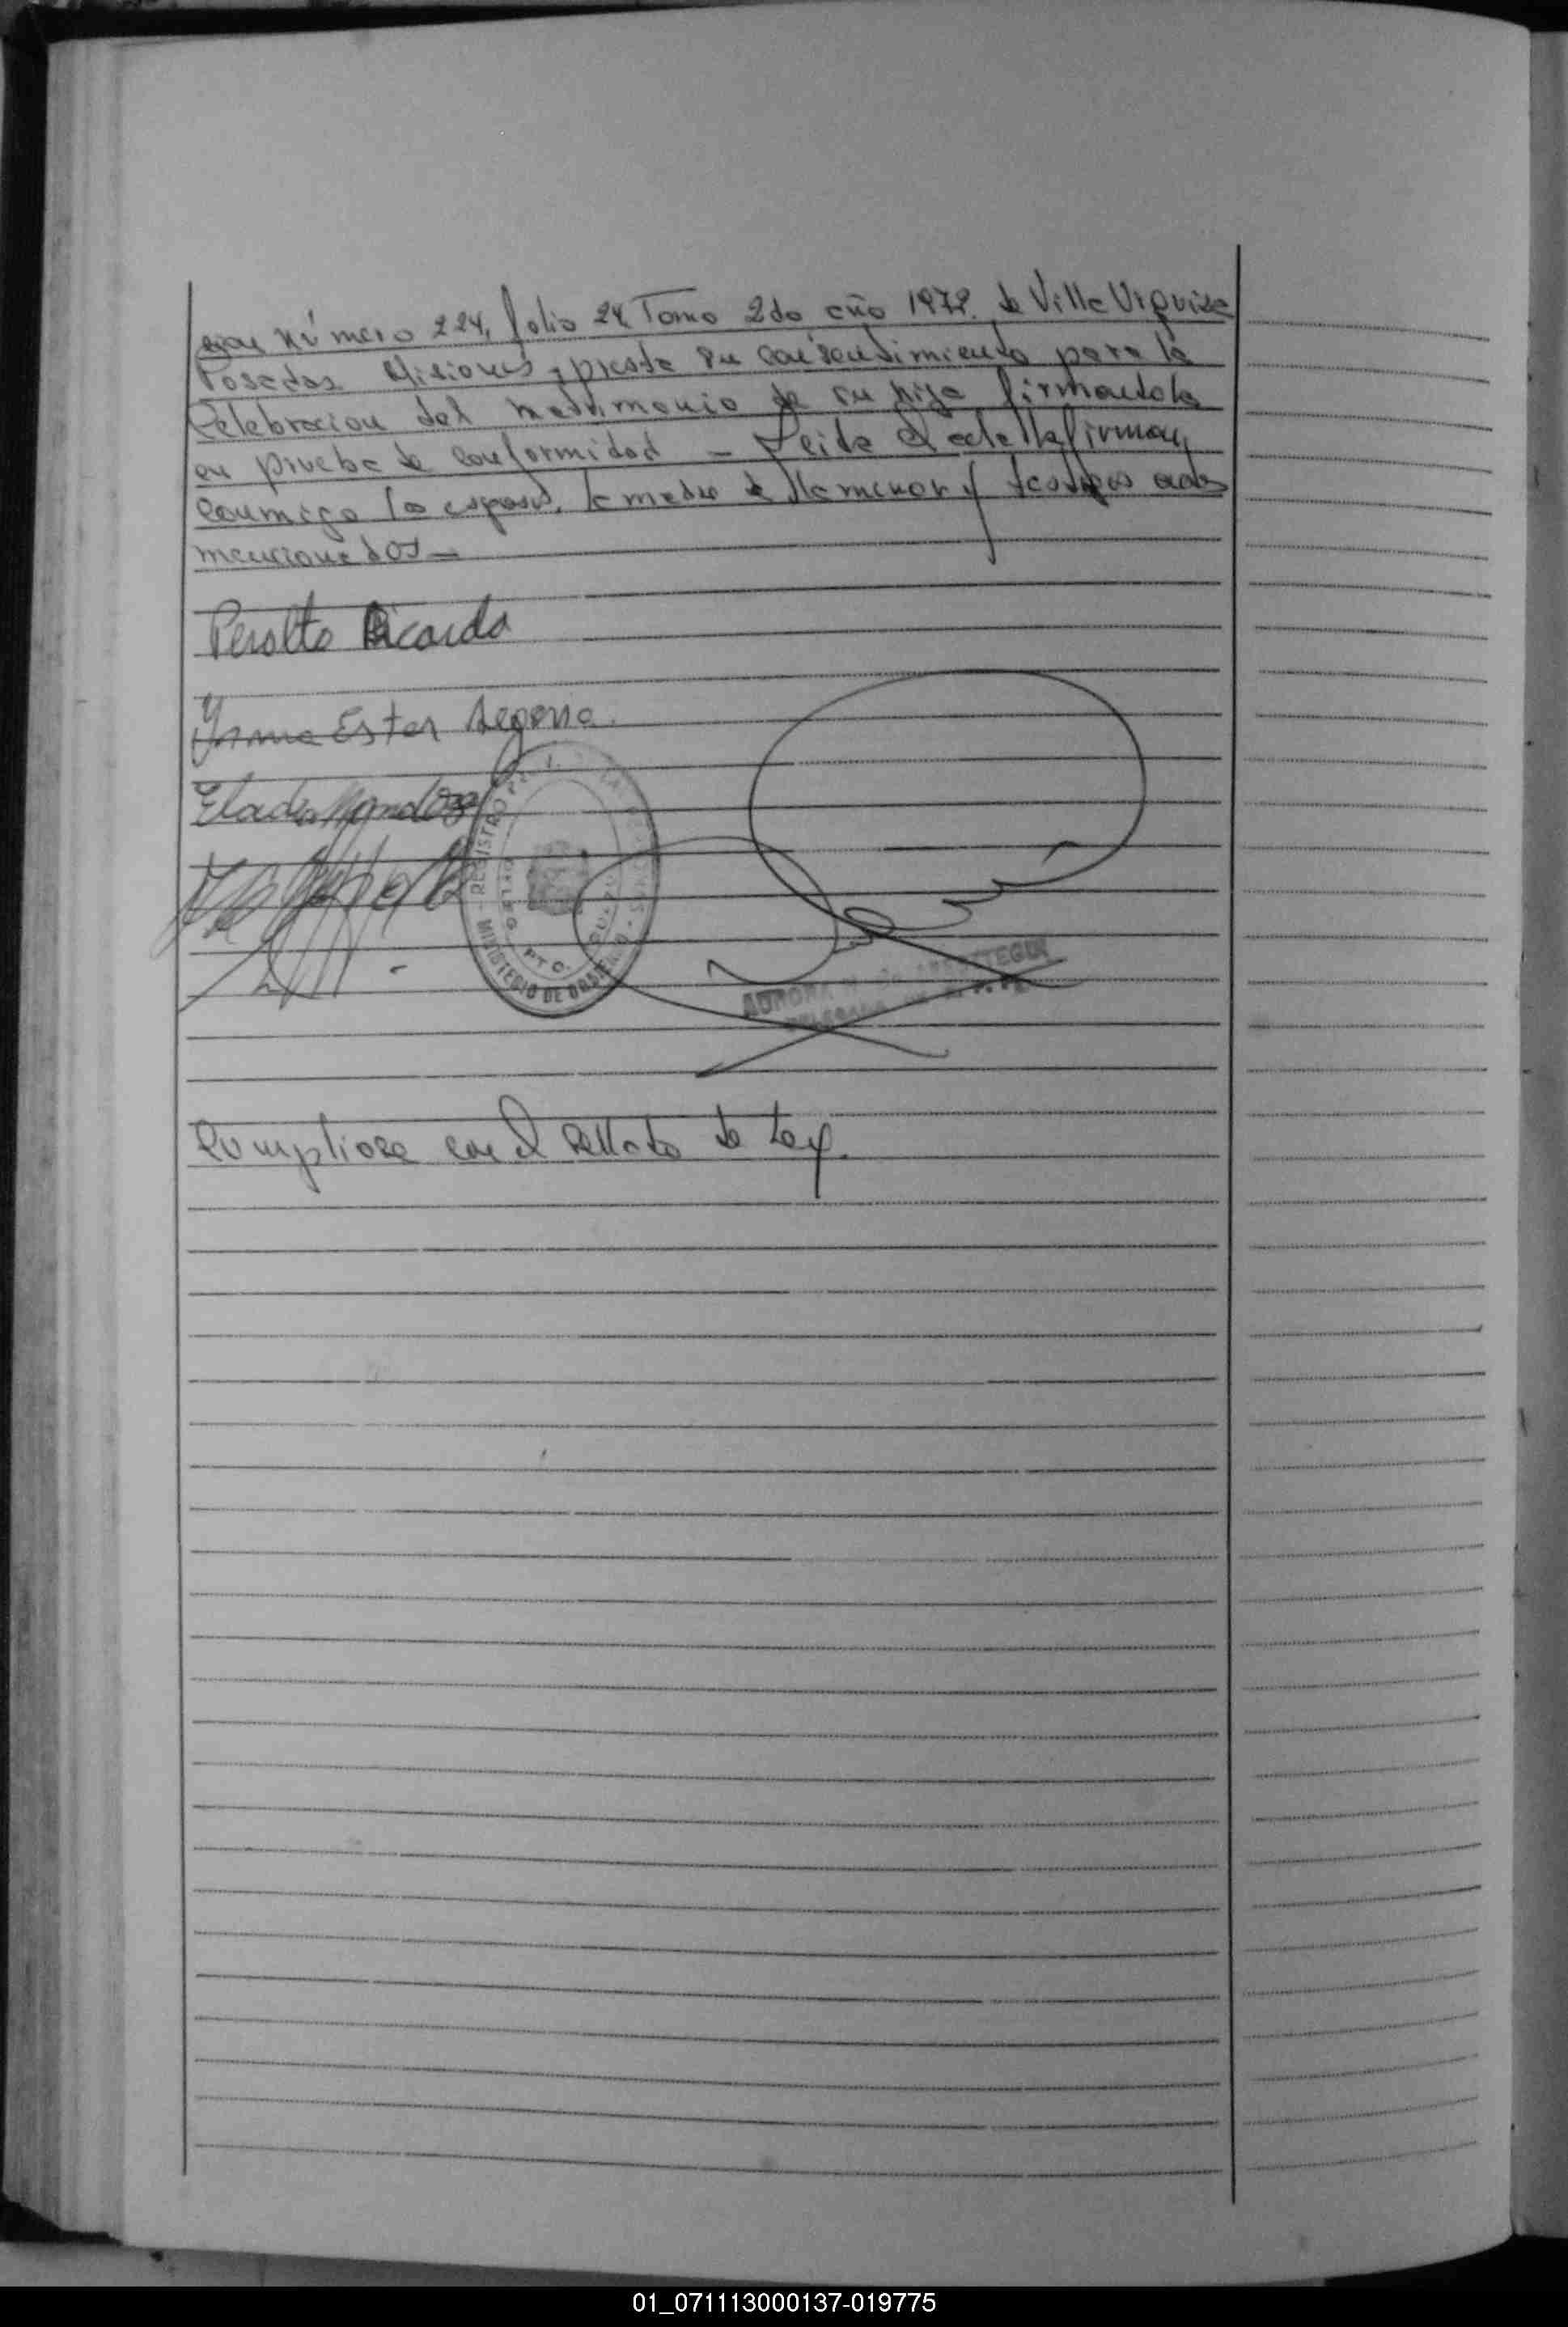 con número 224, folio 24 Tomo 2do año 1972. de Villa Urquiza
Posadas Misiones, presta su consentimiento para la
Celebracion del matrimonio de su hija firmandola
en prueba de conformidad - Leida el acta la firman
conmigo los esposos, la madre de la menor y testigos
mencionados -
Peralta Ricardo
Yrma Ester Segovia.
Eladia Mendoza
REGISTRO
MINISTERIO DE GOBIERNO
PTO.
AURORA
DELEGADA
Cumpliose con el sellado de Ley.
01_071113000137-019775